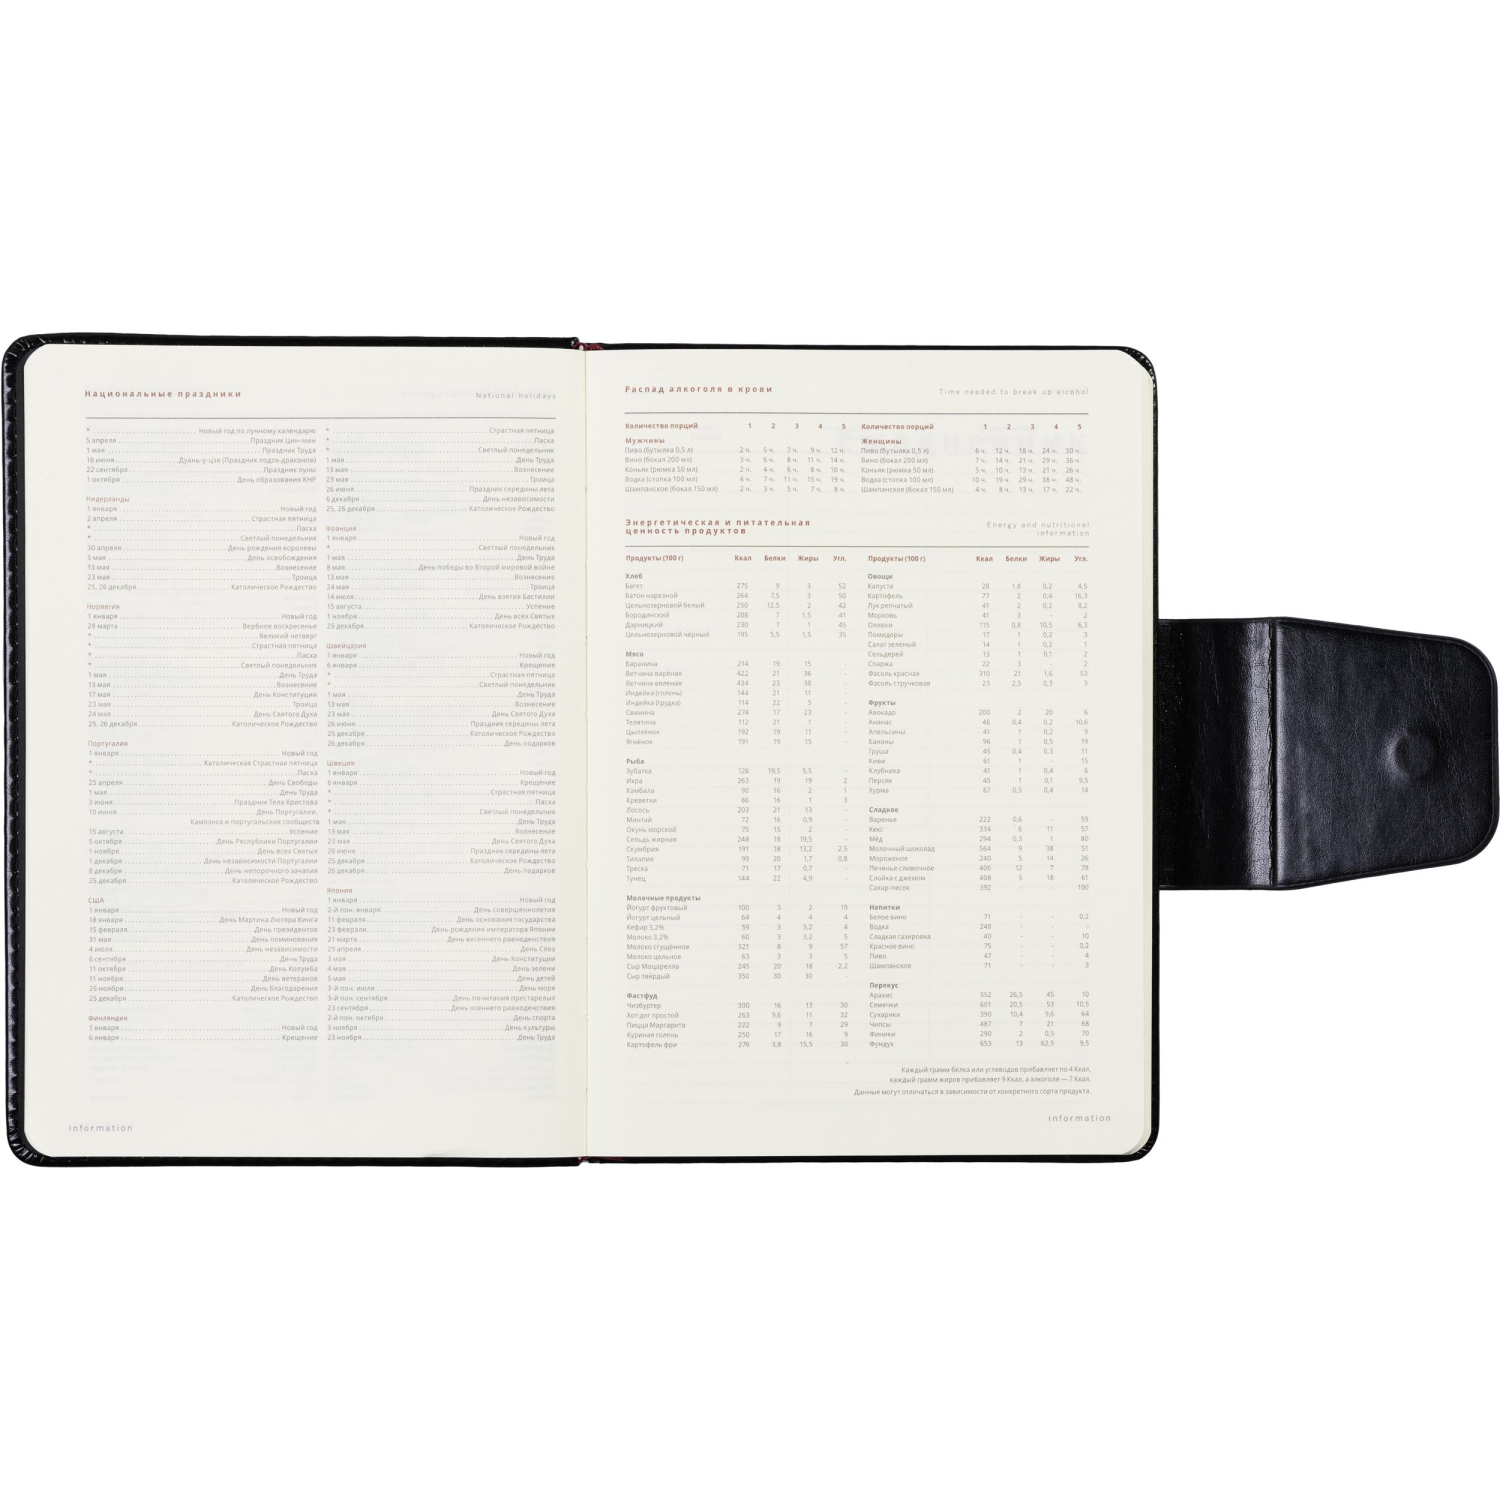 Национальные праздники
National holidays
* Новый год по лунному календарю
5 апреля Праздник Цин-мин
1 мая Праздник Труда
16 июня Дуань-у-цзе (Праздник лодок-драконов)
22 сентября Праздник луны
1 октября День образования КНР
Нидерланды
1 января Новый год
2 апреля Страстная пятница
* Пасха
* Светлый понедельник
30 апреля День рождения королевы
5 мая День освобождения
13 мая Вознесение
23 мая Троица
25, 26 декабря Католическое Рождество
Норвегия
1 января Новый год
28 марта Вербное воскресенье
* Великий четверг
* Страстная пятница
* Пасха
* Светлый понедельник
1 мая День Труда
13 мая Вознесение
17 мая День Конституции
23 мая Троица
24 мая День Святого Духа
25, 26 декабря Католическое Рождество
Португалия
1 января Новый год
* Католическая Страстная пятница
* Пасха
25 апреля День Свободы
1 мая День Труда
3 июня Праздник Тела Христова
10 июня День Португалии,
Камоэнса и португальских сообществ
15 августа Успение
5 октября День Республики Португалии
1 ноября День всех Святых
1 декабря День независимости Португалии
8 декабря День непорочного зачатия
25 декабря Католическое Рождество
США
1 января Новый год
18 января День Мартина Лютера Кинга
15 февраля День президентов
31 мая День поминовения
4 июля День независимости
6 сентября День Труда
11 октября День Колумба
11 ноября День ветеранов
25 ноября День благодарения
25 декабря Католическое Рождество
Финляндия
1 января Новый год
6 января Крещение
* Страстная пятница
* Пасха
* Светлый понедельник
1 мая День Труда
13 мая Вознесение
23 мая Троица
26 июня Праздник середины лета
6 декабря День независимости
25, 26 декабря Католическое Рождество
Франция
1 января Новый год
* Светлый понедельник
1 мая День Труда
8 мая День победы во Второй мировой войне
13 мая Вознесение
24 мая Троица
14 июля День взятия Бастилии
15 августа Успение
1 ноября День всех Святых
25 декабря Католическое Рождество
Швейцария
1 января Новый год
6 января Крещение
* Страстная пятница
* Светлый понедельник
1 мая День Труда
13 мая Вознесение
23 мая День Святого Духа
26 июня Праздник середины лета
25 декабря Католическое Рождество
26 декабря День подарков
Швеция
1 января Новый год
6 января Крещение
* Страстная пятница
* Пасха
* Светлый понедельник
1 мая День Труда
13 мая Вознесение
23 мая День Святого Духа
26 июня Праздник середины лета
25 декабря Католическое Рождество
26 декабря День подарков
Япония
1 января Новый год
2-й пон. января День совершеннолетия
11 февраля День основания государства
23 февраля День рождения императора Японии
21 марта День весеннего равноденствия
29 апреля День Сёва
3 мая День Конституции
4 мая День зелени
5 мая День детей
3-й пон. июля День моря
3-й пон. сентября День почитания престарелых
23 сентября День осеннего равноденствия
2-й пон. октября День спорта
3 ноября День культуры
23 ноября День Труда
information
Распад алкоголя в крови
Time needed to break up alcohol
Количество порций 1 2 3 4 5
Мужчины
Пиво (бутылка 0,5 л) 2 ч. 5 ч. 7 ч. 9 ч. 12 ч.
Вино (бокал 200 мл) 3 ч. 6 ч. 8 ч. 11 ч. 14 ч.
Коньяк (рюмка 50 мл) 2 ч. 4 ч. 6 ч. 8 ч. 10 ч.
Водка (стопка 100 мл) 4 ч. 7 ч. 11 ч. 15 ч. 19 ч.
Шампанское (бокал 150 мл) 2 ч. 3 ч. 5 ч. 7 ч. 8 ч.
Количество порций 1 2 3 4 5
Женщины
Пиво (бутылка 0,5 л) 6 ч. 12 ч. 18 ч. 24 ч. 30 ч.
Вино (бокал 200 мл) 7 ч. 14 ч. 21 ч. 29 ч. 36 ч.
Коньяк (рюмка 50 мл) 5 ч. 10 ч. 13 ч. 21 ч. 26 ч.
Водка (стопка 100 мл) 10 ч. 19 ч. 29 ч. 38 ч. 48 ч.
Шампанское (бокал 150 мл) 4 ч. 8 ч. 13 ч. 17 ч. 22 ч.
Энергетическая и питательная
ценность продуктов
Energy and nutritional
information
Продукты (100 г) Ккал Белки Жиры Угл.
Хлеб
Багет 275 9 3 52
Батон нарезной 264 7,5 3 50
Цельнозерновой белый 250 12,5 2 42
Бородинский 208 7 1,5 41
Дарницкий 230 7 1 45
Цельнозерновой чёрный 195 5,5 1,5 35
Мясо
Баранина 214 19 15 -
Ветчина варёная 422 21 36 -
Ветчина вяленая 434 23 38 -
Индейка (голень) 144 21 11 -
Индейка (грудка) 114 22 5 -
Свинина 274 17 23 -
Телятина 112 21 1 -
Цыплёнок 192 19 11 -
Ягнёнок 191 19 15 -
Рыба
Зубатка 126 19,5 5,5 -
Икра 263 19 19 2
Камбала 90 16 2 1
Креветки 86 16 1 3
Лосось 203 21 13 -
Минтай 72 16 0,9 -
Окунь морской 75 15 2 -
Сельдь жирная 248 18 19,5 -
Скумбрия 191 18 13,2 2,5
Тилапия 99 20 1,7 0,8
Треска 71 17 0,7 -
Тунец 144 22 4,9 -
Молочные продукты
Йогурт фруктовый 100 3 2 19
Йогурт цельный 64 4 4 4
Кефир 3,2% 59 3 3,2 4
Молоко 3,2% 60 3 3,2 5
Молоко сгущённое 321 8 9 57
Молоко цельное 63 3 3 5
Сыр Моцарелла 245 20 18 2,2
Сыр твёрдый 350 30 30 -
Фастфуд
Чизбургер 300 16 13 30
Хот-дог простой 263 9,6 11 32
Пицца Маргарита 222 9 7 29
Куриная голень 250 17 16 9
Картофель фри 276 3,8 15,5 30
Продукты (100 г) Ккал Белки Жиры Угл.
Овощи
Капуста 28 1,8 0,2 4,5
Картофель 77 2 0,4 16,3
Лук репчатый 41 2 0,2 8,2
Морковь 41 3 - 2
Оливки 115 0,8 10,5 6,3
Помидоры 17 1 0,2 3
Салат зелёный 14 1 0,2 1
Сельдерей 13 1 0,1 2
Спаржа 22 3 - 2
Фасоль красная 310 21 1,6 53
Фасоль стручковая 23 2,5 0,3 3
Фрукты
Авокадо 200 2 20 6
Ананас 46 0,4 0,2 10,6
Апельсины 41 1 0,2 9
Бананы 96 1 0,5 19
Груша 45 0,4 0,3 11
Киви 61 1 - 15
Клубника 41 1 0,4 6
Персик 45 1 0,1 9,5
Хурма 67 0,5 0,4 14
Сладкое
Варенье 222 0,6 - 59
Кекс 334 6 11 57
Мёд 294 0,3 1 80
Молочный шоколад 564 9 38 51
Мороженое 240 5 14 26
Печенье сливочное 406 12 7 78
Слойка с джемом 408 5 18 61
Сахар-песок 392 - - 100
Напитки
Белое вино 71 - - 0,2
Водка 248 - - -
Сладкая газировка 40 - - 10
Красное вино 75 - - 0,2
Пиво 47 - - 4
Шампанское 71 - - 3
Перекус
Арахис 552 26,5 45 10
Семечки 601 20,5 53 10,5
Сухарики 390 10,4 9,6 64
Чипсы 487 7 21 68
Финики 290 2 0,5 70
Фундук 653 13 62,5 9,5
Каждый грамм белка или углеводов прибавляет по 4 Ккал,
каждый грамм жиров прибавляет 9 Ккал, а алкоголя — 7 Ккал.
Данные могут отличаться в зависимости от конкретного сорта продукта.
information